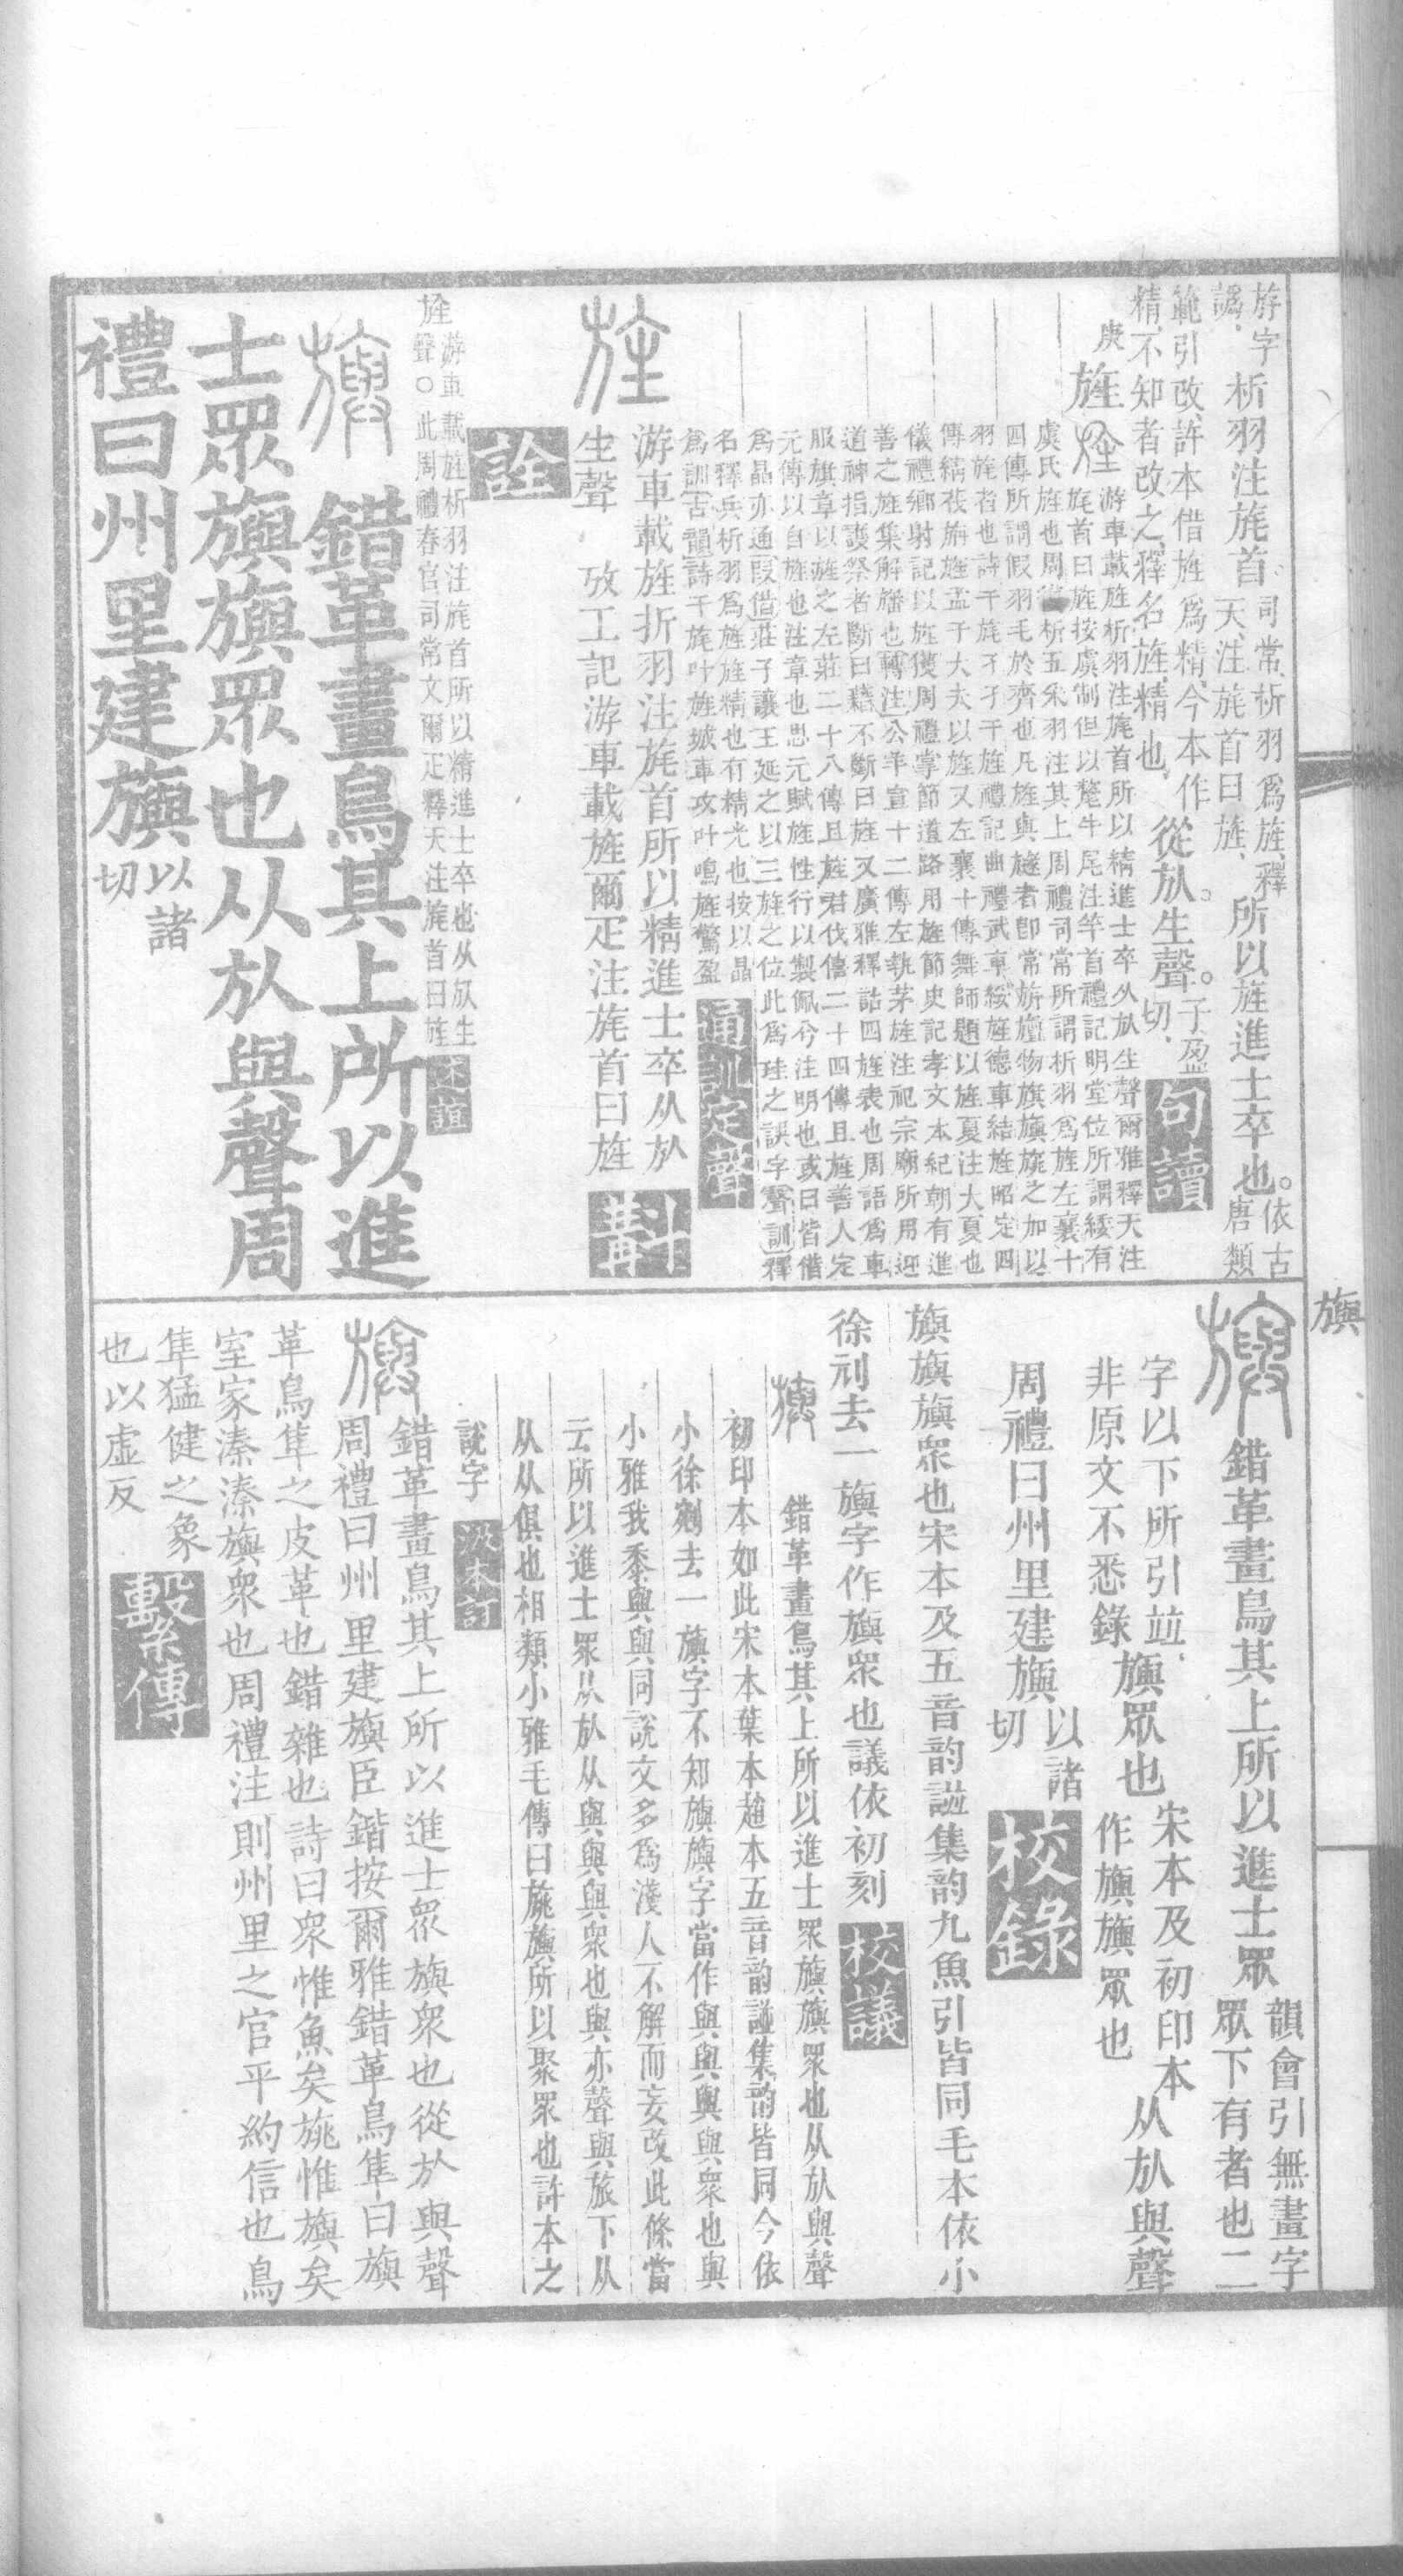 旟
斿字
譌
析羽注旄首
司常析羽爲旌釋
天注旄首曰旌
所以旌進士卒也
依古
唐類
範引改許本借旌爲精今本作
精不知者改之釋名旌精也
從㫃生聲
子盈
切
句讀
庚
旌
游車載旌析羽注旄首所以精進士卒从㫃生聲爾雅釋天注
旄首曰旌按虞制但以氂牛尾注竿首禮記明堂位所謂綏有
虞氏旌也周 析五采羽注其上周禮司常所謂析羽爲旌左襄十
四傳所謂假羽毛於齊也凡旌與旞者卽常旂旜物旗旟旐之加以
羽旄者也詩干旄孑孑干旌禮記曲禮武車綏旌德車結旌昭定四
傳綪茷旃旌孟子大夫以旌又左襄十傳舞師題以旌夏注大夏也
儀禮鄉射記以旌獲周禮掌節道路用旌節史記孝文本紀朝有進
善之旌集解旛也轉注公羊宣十二傳左執茅旌注祀宗廟所用迎
道神指護祭者斷曰藉不斷曰旌又廣雅釋詁四旌表也周語爲車
服旗章以旌之左莊二十八傳且旌君伐僖二十四傳且旌善人定
元傳以自旌也注章也思元賦旌性行以製佩兮注明也或曰皆借
爲晶亦通叚借莊子讓王延之以三旌之位此爲珪之誤字聲訓釋
名釋兵析羽爲旌旌精也有精光也按以晶
爲訓古韻詩干旄叶旌城車攻叶鳴旌驚盈
通訓定聲
游車載旌折羽注旄首所以精進士卒从㫃
生聲 攷工記游車載旌爾疋注旄首曰旌
詮
旌
游車載旌析羽注旄首所以精進士卒也从㫃生
聲○此周禮春官司常文爾疋釋天注旄首曰旌
述誼
旟
錯革畫鳥其上所以進
士眾旟旟眾也从㫃與聲周
禮曰州里建旟
以諸
切
旟
錯革畫鳥其上所以進士眾
韻會引無畫字
眾下有者也二
字以下所引竝
非原文不悉錄
旟眾也
宋本及初印本
作旟旟眾也
从㫃與聲
周禮曰州里建旟
以諸
切
校錄
旟旟旟衆也宋本及五音韵譜集韵九魚引皆同毛本依小
徐刓去一旟字作旟衆也議依初刻
校議
旟
錯革畫鳥其上所以進士眾旟旟眾也从㫃與聲
初印本如此宋本葉本趙本五音韵譜集韵皆同今依
小徐剜去一旟字不知旟旟字當作與與與與衆也與
小雅我黍與與同說文多爲淺人不解而妄改此條當
云所以進士眾从㫃从與與與衆也與亦聲與旅下从
从从俱也相類小雅毛傳曰旐旟所以聚眾也許本之
說字
汲本訂
旟
錯革畫鳥其上所以進士眾旟衆也從㫃與聲
周禮曰州里建旟臣鍇按爾雅錯革鳥隼曰旟
革鳥隼之皮革也錯雜也詩曰衆惟魚矣旐惟旟矣
室家溱溱旟衆也周禮注則州里之官平約信也鳥
隼猛健之象
也以虛反
繫傳